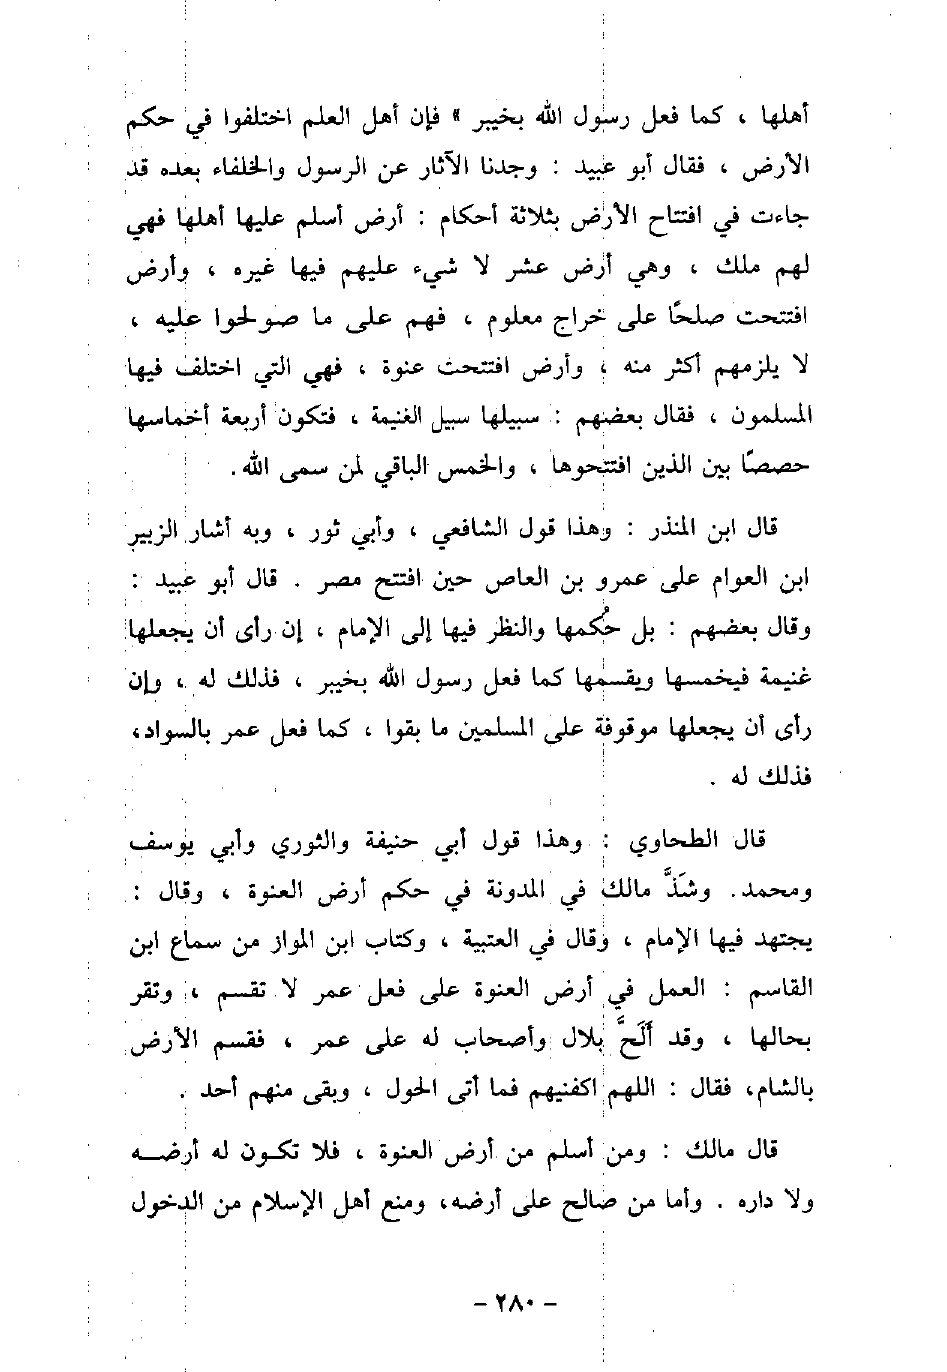 أهلها ، كما فعل رسول الله بخيبر » فإن أهل العلم اختلفوا في حكم
الأرض ، فقال أبو عبيد : وجدنا الآثار عن الرسول والخلفاء بعده قد
جاءت في افتتاح الأرض بثلاثة أحكام : أرض أسلم عليها أهلها فهي
لهم ملك ، وهي أرض عشر لا شيء عليهم فيها غيره ، وأرض
افتتحت صلحًا على خراج معلوم ، فهم على ما صولحوا عليه ،
لا يلزمهم أكثر منه ، وأرض افتتحت عنوة ، فهي التي اختلف فيها
المسلمون ، فقال بعضهم : سبيلها سبيل الغنيمة ، فتكون أربعة أخماسها
حصصًا بين الذين افتتحوها ، والخمس الباقي لمن سمى الله .
قال ابن المنذر : وهذا قول الشافعي ، وأبي ثور ، وبه أشار الزبير
ابن العوام على عمرو بن العاص حين افتتح مصر . قال أبو عبيد :
وقال بعضهم : بل حُكمها والنظر فيها إلى الإمام ، إن رأى أن يجعلها
غنيمة فيخمسها ويقسمها كما فعل رسول الله بخيبر ، فذلك له ، وإن
رأى أن يجعلها موقوفة على المسلمين ما بقوا ، كما فعل عمر بالسواد،
فذلك له .
قال الطحاوي : وهذا قول أبي حنيفة والثوري وأبي يوسف
ومحمد. وشَذَّ مالك في المدونة في حكم أرض العنوة ، وقال :
يجتهد فيها الإمام ، وقال في العتبية ، وكتاب ابن المواز من سماع ابن
القاسم : العمل في أرض العنوة على فعل عمر لا تقسم ، وتقر
بحالها ، وقد أَلَحَّ بلال وأصحاب له على عمر ، فقسم الأرض
بالشام، فقال : اللهم اكفنيهم فما أتى الحول ، وبقى منهم أحد .
قال مالك : ومن أسلم من أرض العنوة ، فلا تكون له أرضه
ولا داره . وأما من صالح على أرضه، ومنع أهل الإسلام من الدخول
- ٢٨٠ -